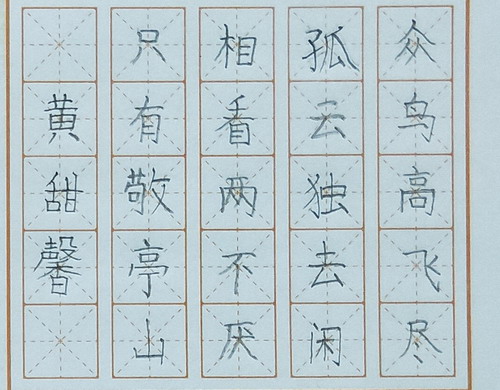 众鸟高飞尽
孤云独去闲
相看两不厌
只有敬亭山
黄甜馨